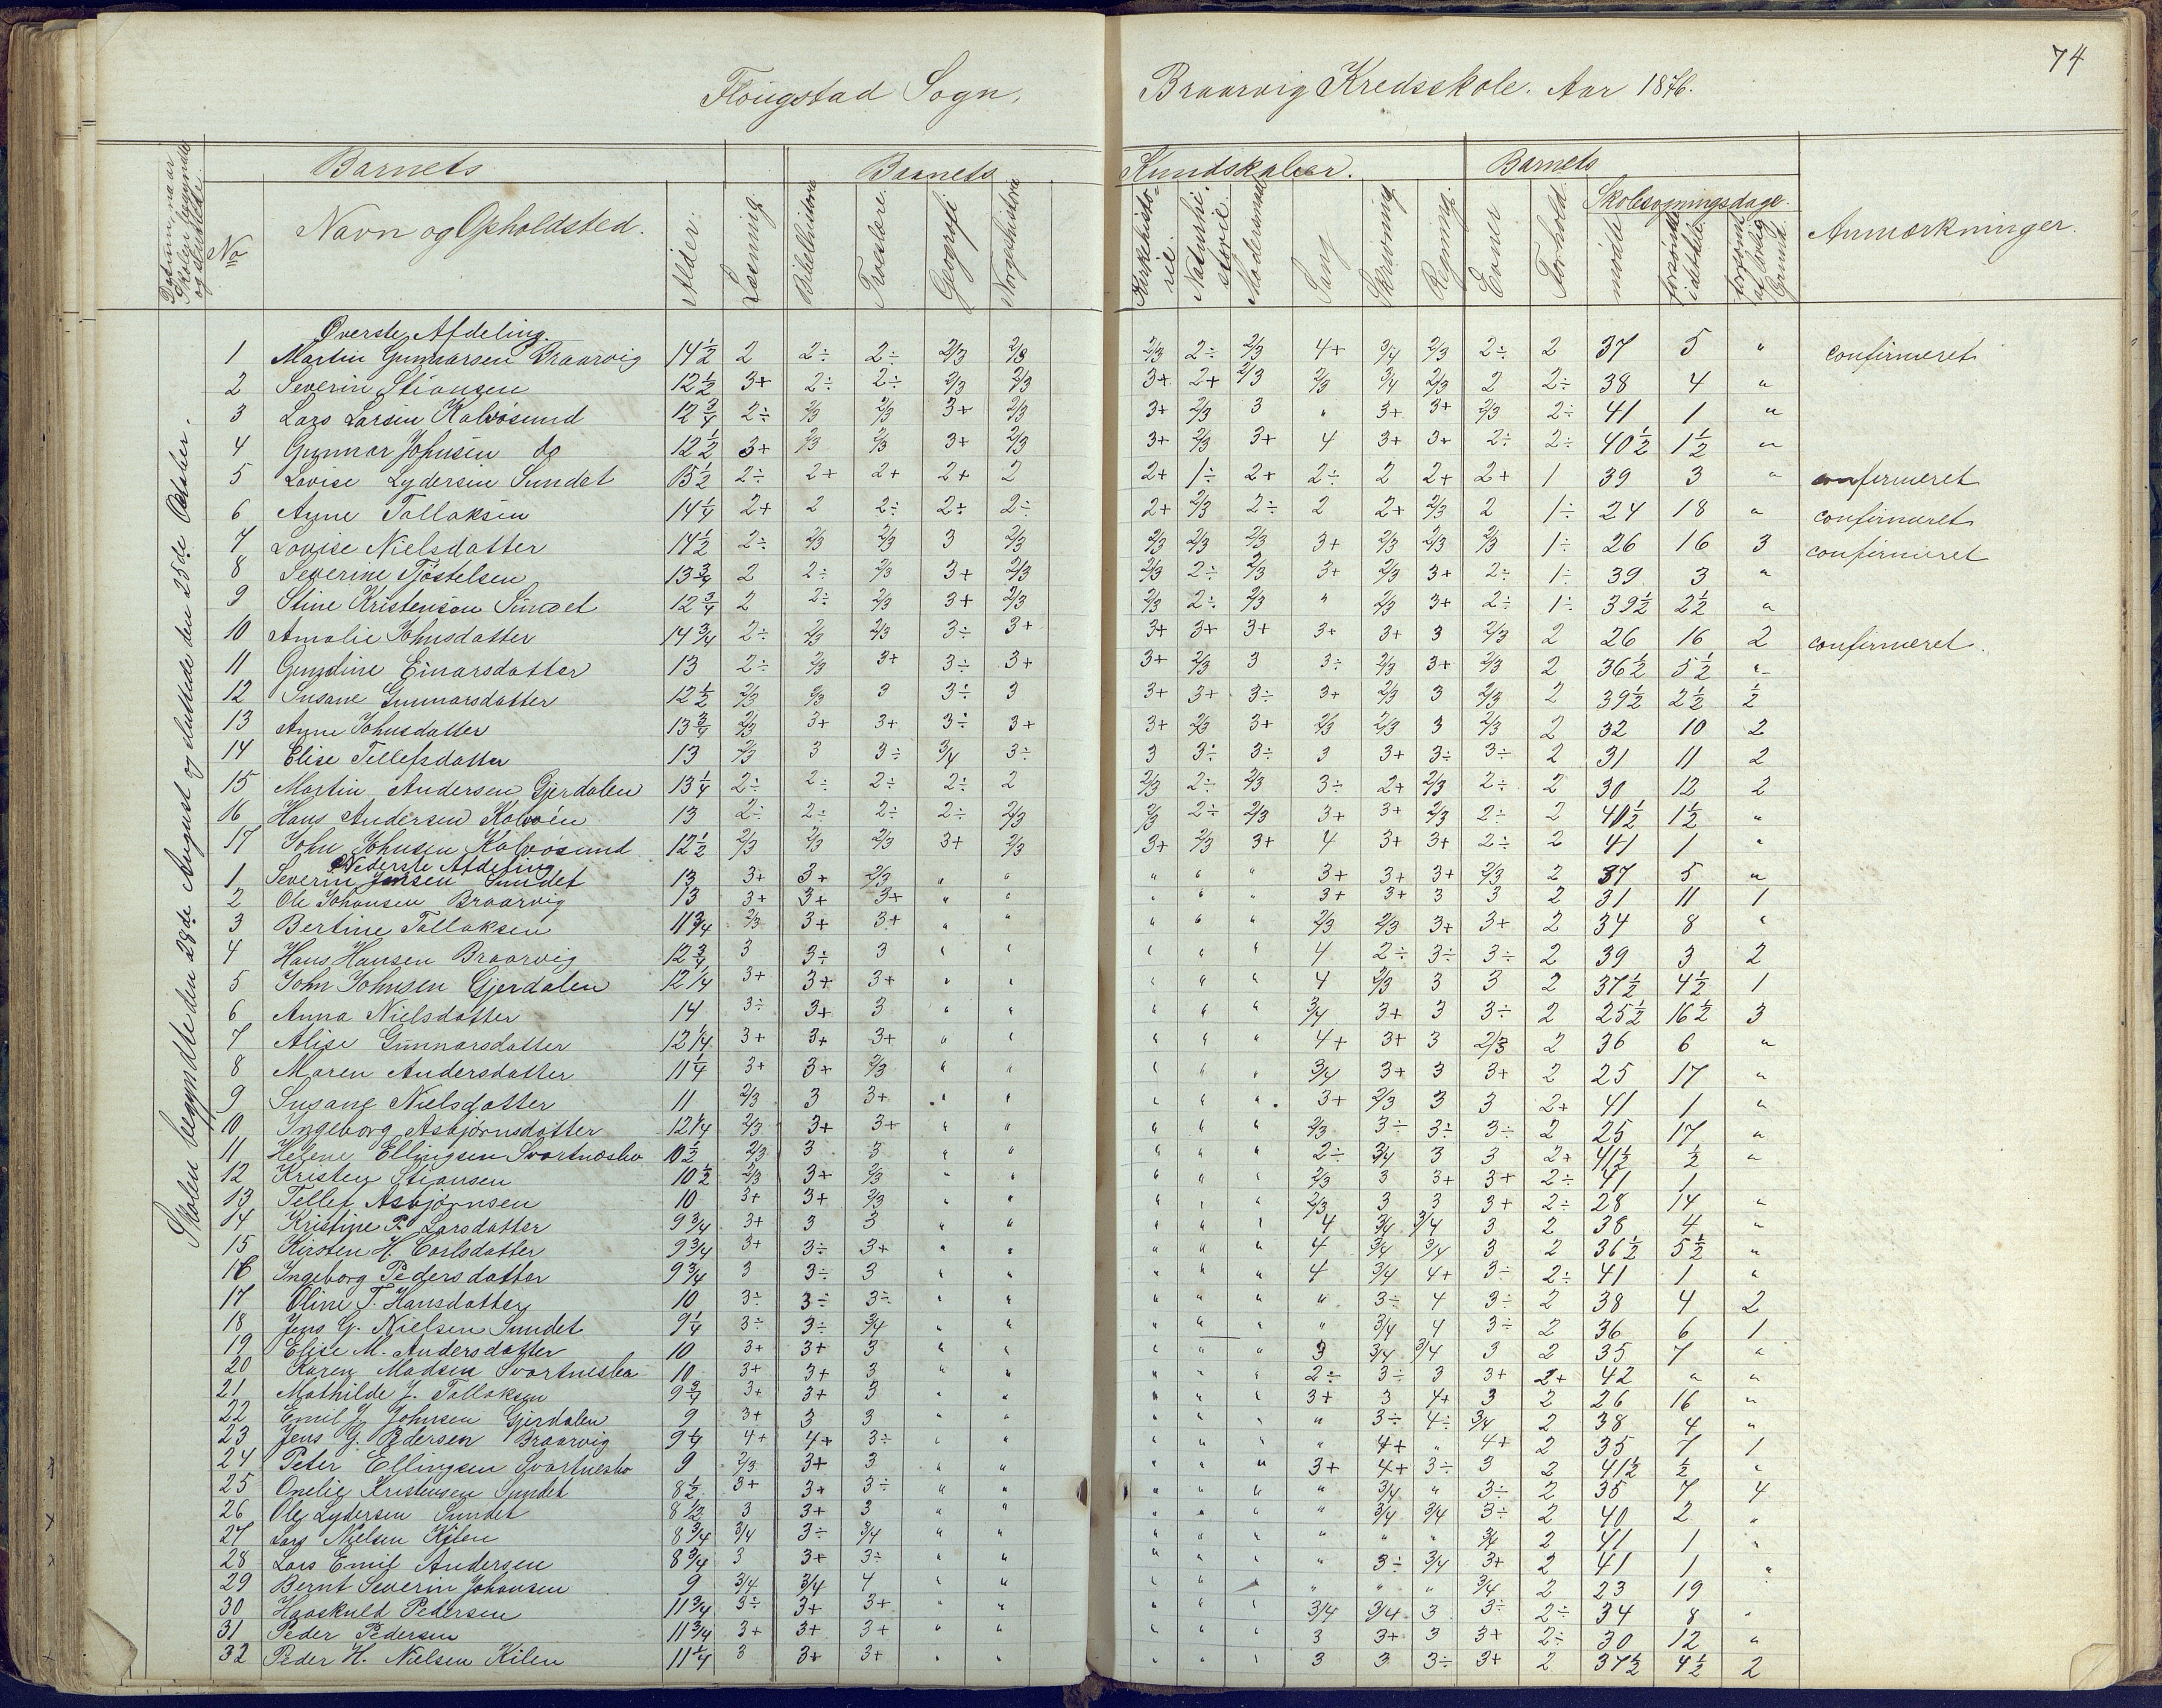 74
Flougstad Sogn, Braarvig Kredsskole. Aar 1876.
Datum naar Skolen begyndte og sluttede. No Barnets Navn og Opholdsted. Alder. Barnets Kundskaber. Læsning Bibelhistorie Troeslære. Geografi Norgeshistorie Kirkehistorie Naturhistorie. Modersmaal Sang Skrivning Regning. Barnets Evner Forhold. Skolesøgningsdage. mødte forsømte idethele forsømt af lovlig Grund. Anmærkninger.
Skolen begyndte den 28de August og sluttede den 25de October.
Øverste Afdeling.
1 Martin Gunnarsen Braarvig 14½ 2 2÷ 2÷ 2/3 2/3 2/3 2÷ 2/3 4+ 3/4 2/3 2÷ 2 37 5 " confirmeret
2 Severin Stiansen 12½ 3+ 2÷ 2÷ 2/3 2/3 3+ 2+ 2/3 2/3 3/4 2/3 2 2÷ 38 4 "
3 Lars Larsen Kalvøsund 12¾ 2÷ 2/3 2/3 3+ 2/3 3+ 2/3 3 " 3+ 3+ 2/3 2÷ 41 1 "
4 Gunnar Johnsen do 12½ 3+ 2/3 2/3 3+ 2/3 3+ 2/3 3+ 4 3+ 3+ 2÷ 2÷ 40½ 1½ "
5 Lovise Lydersen Sundet 15½ 2÷ 2+ 2+ 2+ 2 2+ 1÷ 2+ 2÷ 2 2+ 2+ 1 39 3 " confirmeret
6 Anne Tallaksen 14¼ 2+ 2 2÷ 2÷ 2÷ 2+ 2/3 2÷ 2 2+ 2/3 2 1÷ 24 18 " confirmeret
7 Lovise Nielsdatter 14½ 2÷ 2/3 2/3 3 2/3 2/3 2/3 2/3 3+ 2/3 2/3 2/3 1÷ 26 16 3 confirmeret
8 Severine Tjøstelsen 13¾ 2 2÷ 2/3 3+ 2/3 2/3 2÷ 2/3 3+ 2/3 3+ 2÷ 1÷ 39 3 "
9 Stine Kristenson Sundet 12¾ 2 2÷ 2/3 3+ 2/3 2/3 2÷ 2/3 " 2/3 3+ 2÷ 1÷ 39½ 2½ "
10 Amalie Johnsdatter 14¾ 2÷ 2/3 2/3 3÷ 3+ 3+ 3+ 3+ 3+ 3+ 3 2/3 2 26 16 2 confirmeret.
11 Gundine Einarsdatter 13 2÷ 2/3 3+ 3÷ 3+ 3+ 2/3 3 3÷ 2/3 3+ 2/3 2 36½ 5½ "
12 Susane Gunnarsdatter 12½ 2/3 2/3 3 3÷ 3 3+ 3+ 3÷ 3+ 2/3 3 2/3 2 39½ 2½ ½
13 Anne Johnsdatter 13¾ 2/3 3+ 3+ 3÷ 3+ 3+ 2/3 3+ 2/3 2/3 3 2/3 2 32 10 2
14 Elise Tellefsdatter 13 2/3 3 3÷ 3/4 3÷ 3 3÷ 3÷ 3 3+ 3÷ 3÷ 2 31 11 2
15 Martin Andersen Gjerdalen 13¼ 2÷ 2÷ 2÷ 2÷ 2 2/3 2÷ 2/3 3÷ 2+ 2/3 2÷ 2 30 12 2
16 Hans Andersen Kalvøen 13 2÷ 2÷ 2÷ 2÷ 2/3 2/3 2÷ 2/3 3+ 3+ 2/3 2÷ 2 40½ 1½ "
17 John Johnsen Kalvøsund 12½ 2/3 2/3 2/3 3+ 2/3 3+ 2/3 3+ 4 3+ 3+ 2÷ 2 41 1 "
Nederste Afdeling
1 Severin Jensen Sundet 13 3+ 3+ 2/3 " " " " " 3+ 3+ 3+ 2/3 2 37 5 "
2 Ole Johansen Braarvig 13 3+ 3+ 3+ " " " " " 3+ 3+ 3 3 2 31 11 1
3 Bertine Tallaksen 11¾ 2/3 3+ 3+ " " " " " 2/3 2/3 3+ 3+ 2 34 8 "
4 Hans Hansen Braarvig 12¾ 3 3÷ 3 " " " " " 4 2÷ 3÷ 3÷ 2 39 3 2
5 John Johnsen Gjerdalen 12¼ 3+ 3+ 3+ " " " " " 4 2/3 3 3 2 37½ 4½ 1
6 Anna Nielsdatter 14 3÷ 3+ 3 " " " " " 3/4 3+ 3 3÷ 2 25½ 16½ 3
7 Alise Gunnarsdatter 12¼ 3+ 3+ 3+ " " " " " 4+ 3+ 3 2/3 2 36 6 "
8 Maren Andersdatter 11¼ 3+ 3+ 2/3 " " " " " 3/4 3+ 3 3+ 2 25 17 "
9 Susane Nielsdatter 11 2/3 3 3+ " " " " " 3+ 2/3 3 3 2+ 41 1 "
10 Ingeborg Asbjørnsdatter 12¼ 2/3 3+ 3+ " " " " " 2/3 3÷ 3÷ 3÷ 2 25 17 "
11 Helene Ellingsen Svartnesbo 10½ 2/3 3 3 " " " " " 2÷ 3/4 3 3 2+ 41½ ½ "
12 Kristen Stiansen 10½ 2/3 3+ 2/3 " " " " " 2/3 3 3+ 3+ 2÷ 41 1
13 Tellef Asbjørnsen 10 3+ 3+ 2/3 " " " " " 2/3 3 3 3+ 2÷ 28 14 "
14 Kristine P. Larsdatter 9¾ 3+ 3 3 " " " " " 4 3/4 3/4 3 2 38 4 "
15 Kirsten H. Carlsdatter 9¾ 3+ 3÷ 3+ " " " " " 4 3/4 3/4 3 2 36½ 5½ "
16 Ingeborg Pedersdatter 9¾ 3 3÷ 3 " " " " " 4 3/4 4+ 3÷ 2÷ 41 1 "
17 Oline T. Hansdatter 10 3÷ 3÷ 3÷ " " " " " " 3÷ 4 3÷ 2 38 4 2
18 Jens G. Nielsen Sundet 9¼ 3÷ 3÷ 3/4 " " " " " " 3/4 4 3÷ 2 36 6 1
19 Elise M. Andersdatter 10 3+ 3+ 3 " " " " " 3 3/4 3/4 3 2 35 7 "
20 Karen Madsen Svartnesbo 10 3+ 3+ 3 " " " " " 2÷ 3÷ 3 3+ 2+ 42 " "
21 Mathilde J. Tallaksen 9¾ 3+ 3+ 3 " " " " " 3+ 3 4+ 3 2 26 16 "
22 Emil J. Johnsen Gjerdalen 9 3+ 3 3 " " " " " " 3÷ 4÷ 3/4 2 38 4 "
23 Jens G. Pedersen Braarvig 9¼ 4+ 4+ 3÷ " " " " " " 4+ " 4+ 2 35 7 1
24 Peter Ellingsen Svartnesbo 9 2/3 3+ 3 " " " " " 3+ 4+ 3÷ 3 2 41½ ½ "
25 Onelie Kristensen Sundet 8½ 3+ 3+ 3÷ " " " " " " 3/4 " 3÷ 2 35 7 4
26 Ole Lydersen Sundet 8½ 3 3+ 3 " " " " " " 3/4 3/4 3÷ 2 40 2 "
27 Lars Nielsen Kilen 8¾ 3/4 3÷ 3/4 " " " " " " " " 3/4 2 41 1 "
28 Lars Emil Andersen 8¾ 3 3+ 3÷ " " " " " " 3÷ 3/4 3+ 2 41 1 "
29 Bernt Severin Johansen 9 3/4 3/4 4 " " " " " " " " 3/4 2 23 19 "
30 Haaskuld Pedersen 11¾ 3÷ 3+ 3+ " " " " " 3/4 3/4 3 3÷ 2÷ 34 8 "
31 Peder Pedersen 11¾ 3+ 3+ 3+ " " " " " 3 3+ 3 3+ 2÷ 30 12 "
32 Peder H. Nielsen Kilen 11¼ 3 3+ 3+ " " " " " 3 3 3÷ 3+ 2 37½ 4½ 2